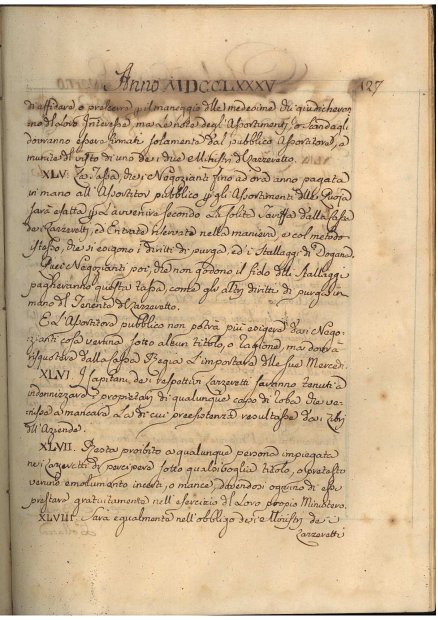 Anno MDCCLXXXV 127
di affidare o prelevare p il maneggio delle medesime chi giudicheran-
no di Loro Interesse, ma Le note degl'Assortimenti, o Scandagli
dovranno esser firmate solamente dal pubblico Assortitore, e
munite di visto di uno dei due Ministri di Lazzeretto.
XLV. La Tassa che i Negozianti fino ad ora anno pagata
in mano all'Assortitor pubblico p gli Assortimenti delle Cuoja
sarà esatta p L'avvenire secondo La solita Tariffa dalla Cassa
dei Lazzeretti, ed Entrate riservate nella maniera e col metodo
stesso, che si esigono i diritti di purga, ed i Stallaggi di Dogana.
Quei Negozianti poi, che non godono il fido delle Stallaggi
pagheranno questa tassa, come gli altri diritti di purga in
mano del Tenente di Lazzeretto.
E L'Assortitore pubblico non potrà più esigere dai Nego-
zianti cosa veruna sotto alcun titolo, o ragione, ma dovrà
risquotere dalla Cassa Regia L'importare delle sue Merced.
XLVI. I Capitani dei respettivi Lazzeretti saranno tenuti a
indennizzare i proprietarj di qualunque capo di roba che ve-
nisse a mancare La di cui preesistenza resultasse dai Libri
dell'Aziende.
XLVII. Resta proibito a qualunque persona impiegata
nei Lazzeretti di percipere sotto qualsivoglia titolo, o pretesto
verun emolumento incerti, o mance, dovendosi ognuno di esse
prestare gratuitamente nell'esercizio del Loro proprio Ministero.
XLVIII. Sarà egualmente nell'obbligo dei Ministri dei
Lazzeretti